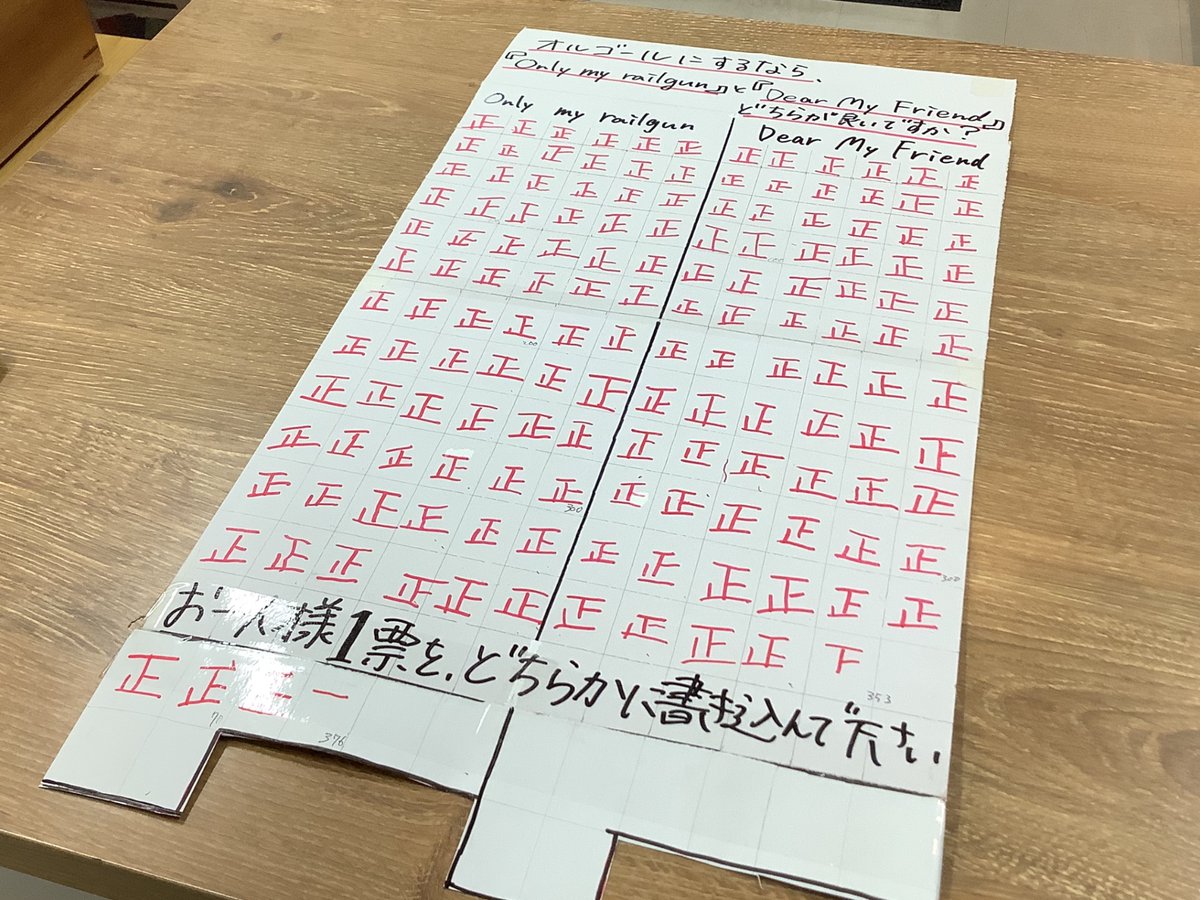 オルゴールにするなら、
『Only my railgun』と『Dear My Friend』
どちらが良いですか?
Only my railgun
正正正正正正
正正正正正正
正正正正正正
正正正正正正
正正正正正正
正正正正正正
正正正正正正
200
正正正正正正
正正正正正正
正正正正正正
300
正正正正正正
正正正正正正
Dear My Friend
正正正正正正
正正正正正正
正正正正正正
正正正正正正
100
正正正正正正
正正正正正正
正正正正正正
正正正正正正
正正正正正正
正正正正正正
300
正正正正正正
正正正正下
353
お一人様1票を、どちらかに書き込んで下さい
正正正一
376